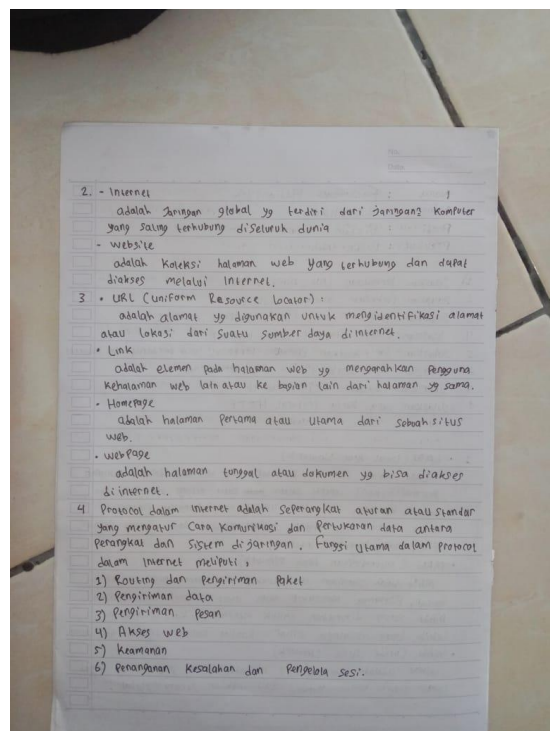 2. - Internet
adalah Jaringan global yg terdiri dari jaringan2 Komputer
yang saling terhubung diseluruh dunia
- Website
adalah Koleksi halaman web yang terhubung dan dapat
diakses melalui Internet.
3 • URL (Uniform Resource locator) :
adalah alamat yg digunakan untuk mengidentifikasi alamat
atau lokasi dari suatu sumber daya di internet.
• Link
adalah elemen pada halaman web yg mengarahkan Pengguna
Kehalaman web lain atau ke bagian lain dari halaman yg sama.
• Homepage
adalah halaman Pertama atau Utama dari sebuah situs
web.
• Webpage
adalah halaman tunggal atau dokumen yg bisa diakses
di internet.
4 Protocol dalam internet adalah seperangkat aturan atau standar
yang mengatur Cara Komunikasi dan Pertukaran data antara
Perangkat dan Sistem di jaringan. Fungsi Utama dalam protocol
dalam Internet meliputi :
1) Routing dan Pengiriman Paket
2) Pengiriman data
3) Pengiriman Pesan
4) Akses web
5) Keamanan
6) Penanganan Kesalahan dan Pengelola sesi.